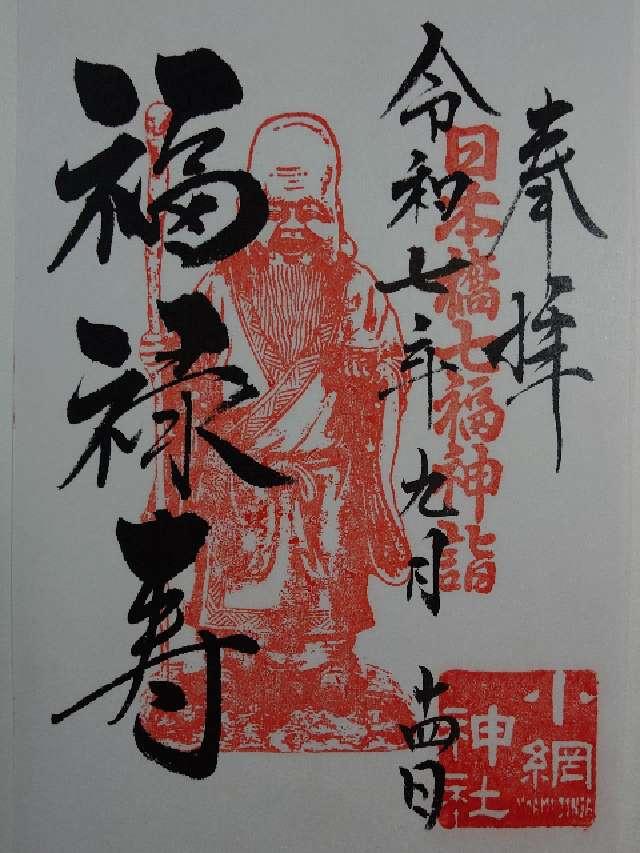 奉拝
日本橋七福神詣
令和七年九月十四日
福禄寿
小網
神社